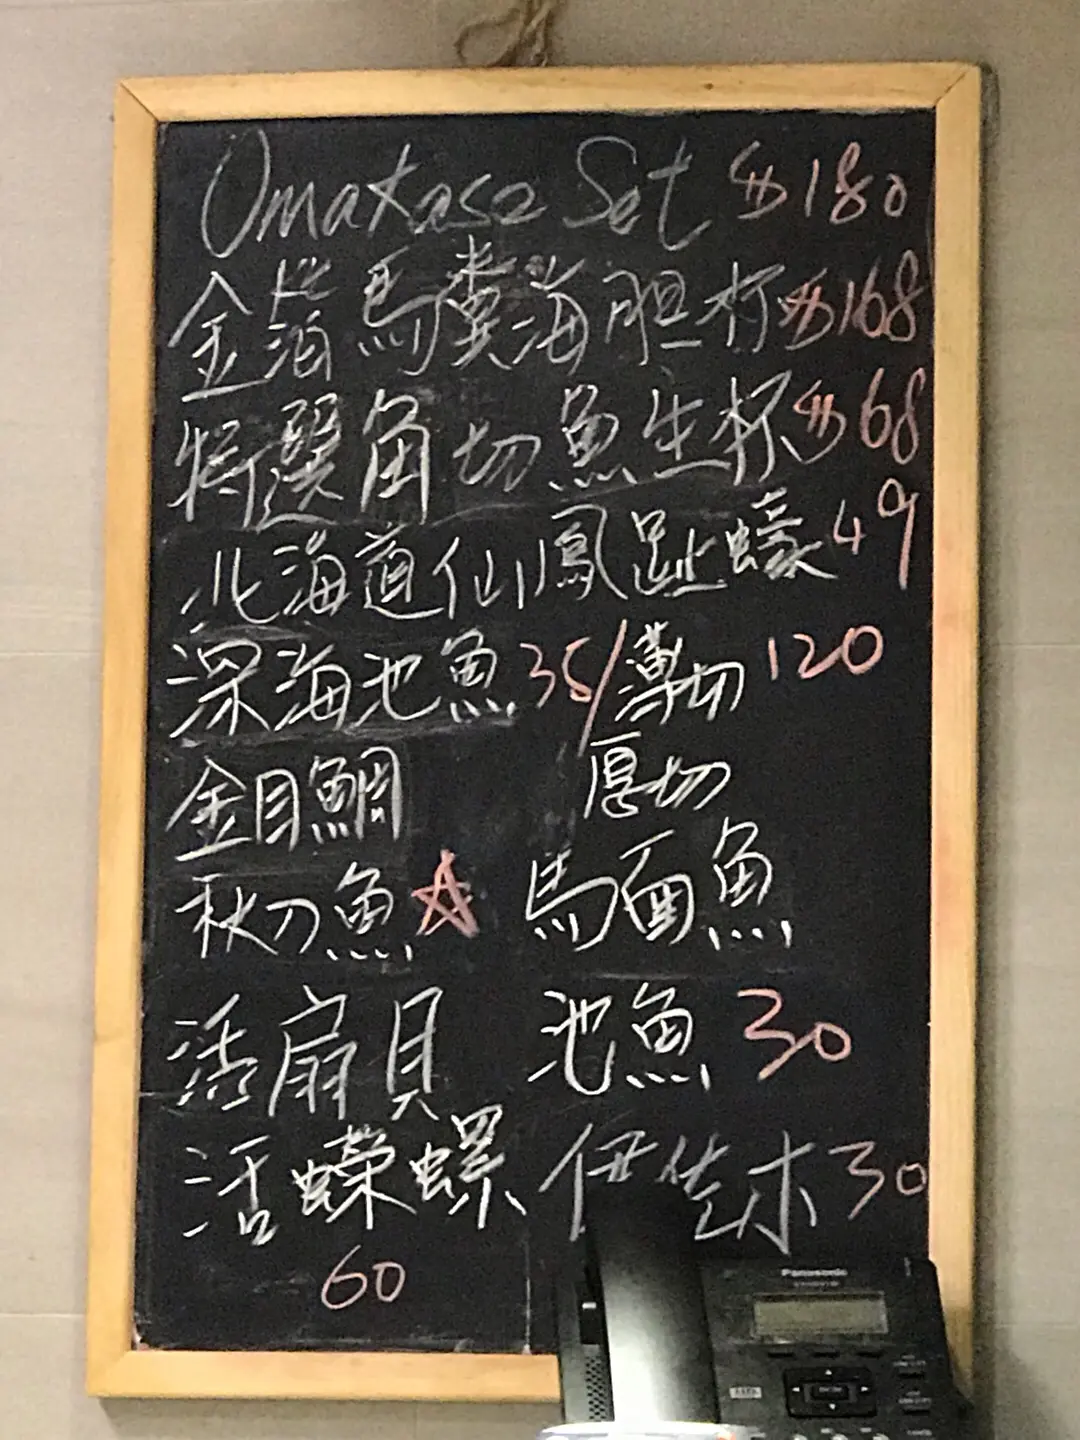 Omakase Set $180
金箔馬糞海胆杯$168
特選角切魚生杯$68
北海道仙鳳趾蠔49
深海池魚35/薄切120
金目鯛 厚切
秋刀魚☆ 馬面魚
活扇貝 池魚30
活蠑螺 伊佐木30
60
Panasonic